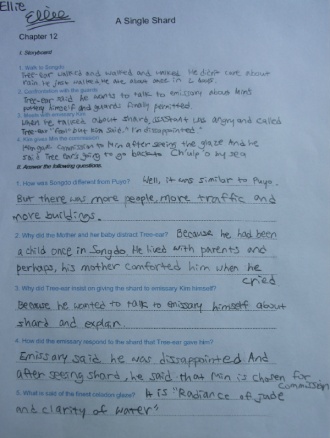 Ellie
Ellie
A Single Shard
Chapter 12
I. Storyboard
1. Walk to Songdo
Tree-ear walked and walked and walked. He didn't care about
2. Confrontation with the guards
Tree-ear said he wants to talk to emissary about him's
himself and guards finally permitted.
When he talked about shard, assistant was angry and called
Tree-ear "Fool" but Kim said "I'm disappointed."
4. Kim gives Min the commission
commission to Min after seeing the glaze and he
said Tree ear's going to go back to Ch'ulp'o by sea
II. Answer the following questions.
1. How was Songdo different from Puyo? Well, it was similar to Puyo.
But there was more people, more traffic and
more buildings.
2. Why did the Mother and her baby distract Tree-ear? Because he had been
a child once in Songdo. He lived with parents and
perhaps, his mother comforted him when he
cried
3. Why did Tree-ear insist on giving the shard to emissary Kim himself?
Because he wanted to talk to emissary himself about
shard and explain.
4. How did the emissary respond to the shard that Tree-ear gave him?
Emissary said he was dissappointed. And
after seeing shard, he said that Min is chosen for
commission
5. What is said of the finest celadon glaze? It is "Radiance of jade
and clarity of water"